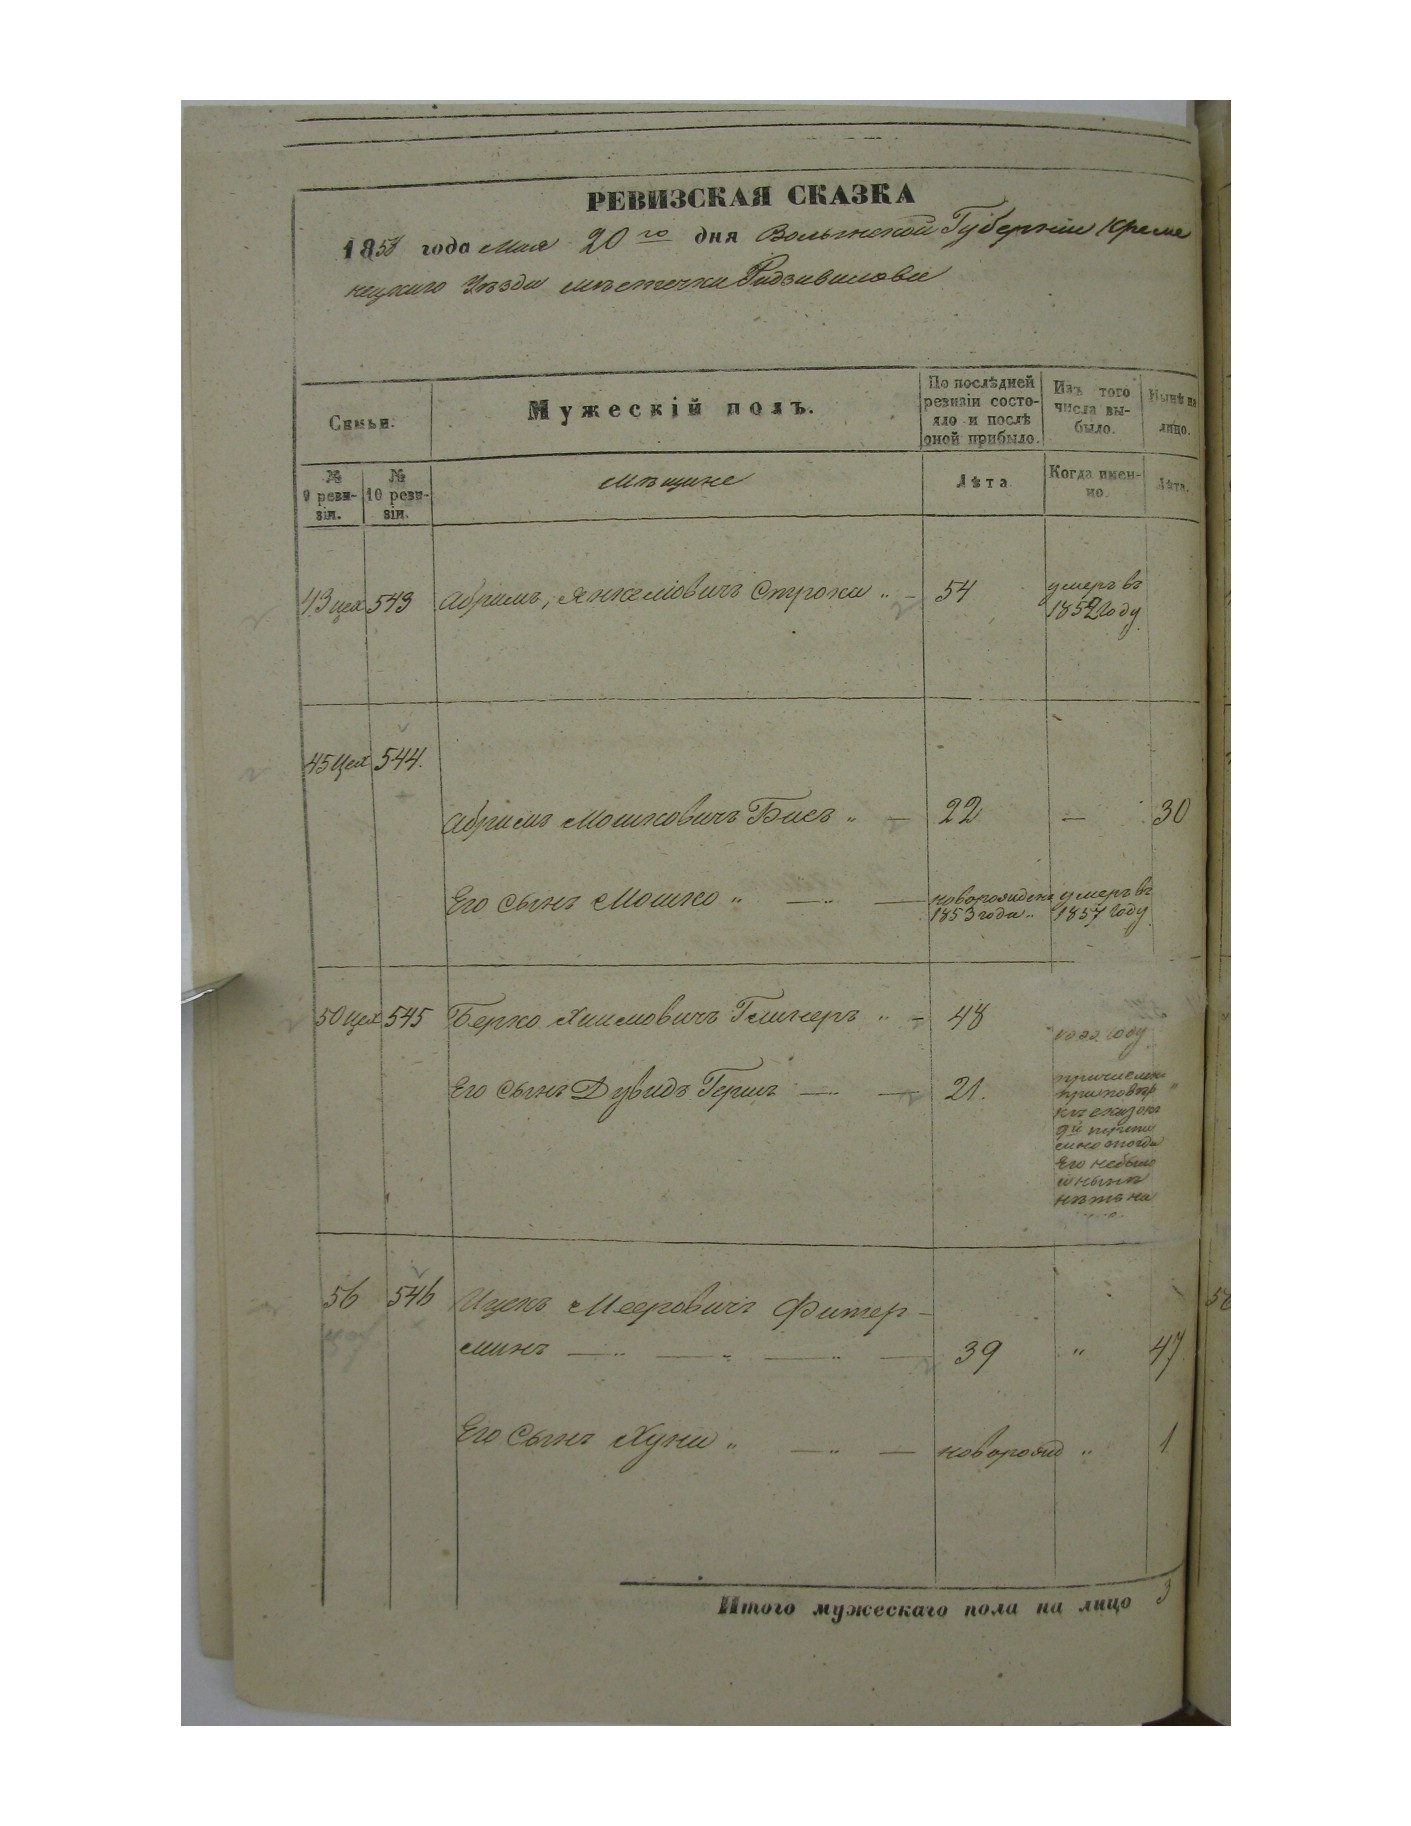 РЕВИЗСКАЯ СКАЗКА
1858 года Мая 20го дня Волынской Губерніи Креме
нецкаго Уѣзда мѣстечка Радзивилова
Семьи.
Мужескій полъ.
По послѣдней ревизіи состо-
яло и послѣ
оной прибыло.
Изъ того
числа вы-
было.
Нынѣ на
лицо.
№
9 реви-
зіи.
№
10 реви-
зіи.
Мѣщане
Лѣта
Когда имен-
но.
Лѣта.
43 цех 543 Абрамъ, Янкелювичъ Строка „ — 54 умеръ въ
1852 Году
45 Цех 544.
Абрамъ Мошковичъ Бисъ „ — 22 — 30
Его Сынъ Мошко „ — „ — новорожденъ умеръ въ
1853 года „ 1857 Году
50 цех 545 Берко Хаимовичъ Гелнеръ „ — 48
Году
Его Сынъ Дувидъ Гершъ — — 21. причисленъ
при повѣр
къ сказкъ
9й
тогда
Его небыло
и нынѣ
нѣтъ на
56 546 Ицекъ Мееровичъ Фитер-
манъ — „ — „ — „ — 39 „ 47
Его Сынъ Хуна „ — „ — новорожд „ 1
Итого мужескаго пола на лицо 3